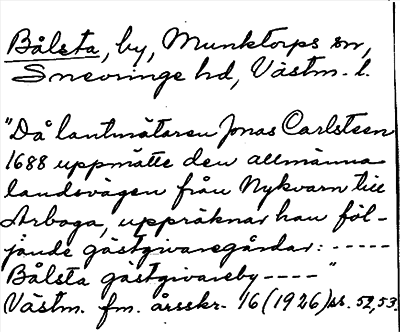 Bålsta, by, Munktorps sn,
Snevringe hd, Västm. l.
"Då lantmätaren Jonas Carlsteen
1688 uppmätte den allmänna
landsvägen från Nykvarn till
Arboga, uppräknar han föl-
jande gästgivaregårdar: -----
Bålsta gästgivareby ---- "
Västm. fm. årsskr. 16 (1926) s. 52,53.